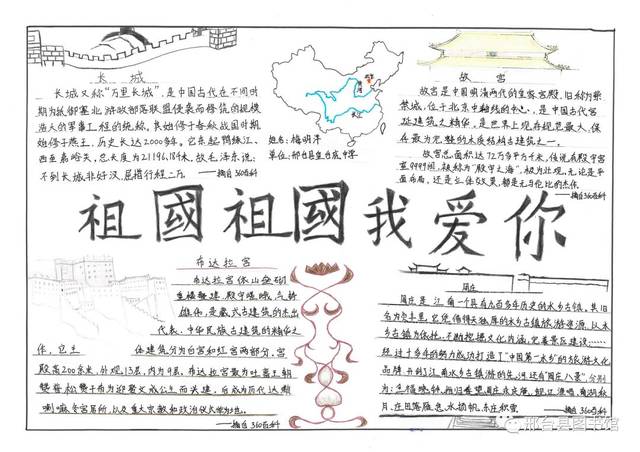 长城
长城又称“万里长城”,是中国古代在不同时
期为抵御塞北游牧部落联盟侵袭而修筑的规模
浩大的军事工程的统称。其始修于春秋战国时期
始停于燕王,历史长达2000多年。它东起鸭绿江、
西至嘉峪关,总长度为21196.18千米,故毛泽东说:
不到长城非好汉,屈指行程二万。
——摘自360百科
北京
黄河
长江
姓名:梅明洋
单位:邢台县皇台底中学
故宫
故宫是中国明清两代的皇家宫殿,旧称为紫
禁城,位于北京中轴线的中心,是中国古代宫
廷建筑之精华,是世界上现存规模最大、保
存最为完整的木质结构古建筑之一。
故宫总面积达72万多平方千米,传说有殿宇宫
室9999间,被称为“殿宇之海”,极为壮观,无论是平
面布局,还是立体效果,都是无与伦比的杰作。
——摘自360百科
祖國祖國我爱你
布达拉宫
布达拉宫依山垒砌
重楼叠建,殿宇嵯峨,气势
雄伟,是藏式古建筑的杰出
代表,中华民族古建筑的精华之
作,它主体建筑分为白宫和红宫两部分,宫
殿高200余米,外观13层,内为9层。布达拉宫最为吐蕃王朝
赞普松赞干布为迎娶文成公主而兴建,后成为历代达赖
喇嘛冬宫居所,以及重大宗教和政治仪式举办地。
——摘自360百科
周庄
周庄是江南一个具有九百多年历史的水乡古镇,其旧
名为贞丰里,它凭借得天独厚的水乡古镇旅游资源,以水
乡古镇为依托,不断挖掘文化内涵,完善景区建设……
经过十多年的努力成功打造了“中国第一水乡”的旅游文化
品牌,开创了江南水乡古镇游的先河,还有“周庄八景”,分别
为:全福晓钟、指归春望
庄田落雁、急水扬帆、东庄积雪。
——摘自360百科
邢台县图书馆